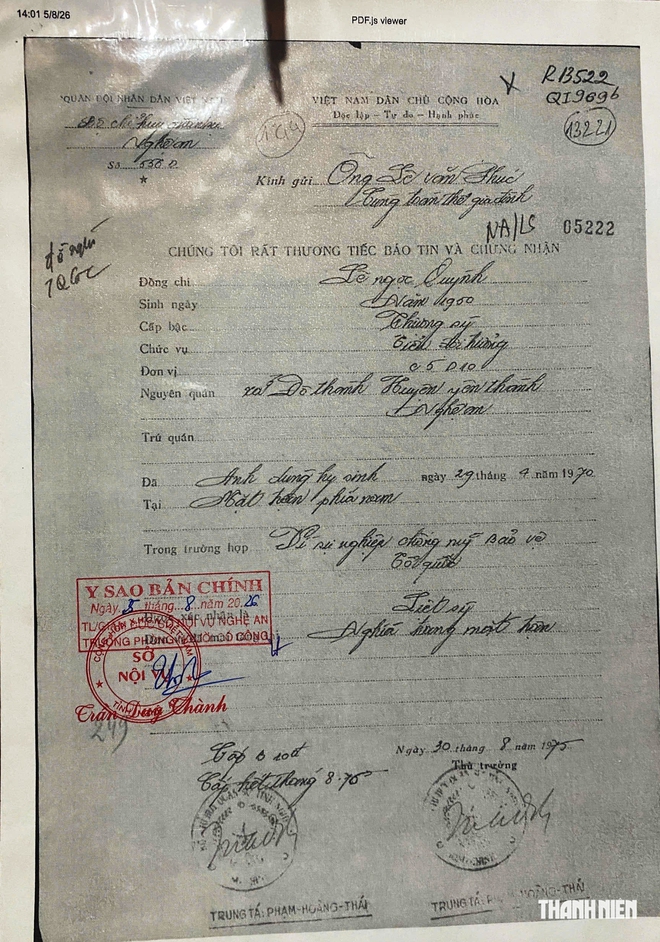 14:01 5/8/26
PDF.js viewer
QUÂN ĐỘI NHÂN DÂN VIỆT NAM
Nghệ an
Số 556 D
VIỆT NAM DÂN CHỦ CỘNG HÒA
Độc lập – Tự do – Hạnh phúc
R13522
QI9696
13221
Kính gửi Ông Lê văn Phúc
Cùng toàn thể gia đình
NA/LS 05222
đề nghị
TQGC
CHÚNG TÔI RẤT THƯƠNG TIẾC BÁO TIN VÀ CHỨNG NHẬN
Đồng chí Lê ngọc Quỳnh
Sinh ngày Năm 1950
Cấp bậc Thượng sỹ
Chức vụ Tiểu đội trưởng
Đơn vị c5 D10
Nguyên quán xã Đô thành Huyện yên thành
Nghệ an
Trú quán
Đã Anh dũng hy sinh ngày 29 tháng 4 năm 1970
Tại Mặt trận phía nam
Trong trường hợp Vì sự nghiệp chống mỹ Bảo vệ
Tổ quốc
Liệt sỹ
Nghĩa trang mặt trận
Y SAO BẢN CHÍNH
Ngày 5 tháng 8 năm 2026
TL/GIÁM ĐỐC SỞ NỘI VỤ NGHỆ AN
TRƯỞNG PHÒNG NGƯỜI CÓ CÔNG
SỞ
NỘI VỤ
Trần Duy Thành
249
Cấp hết tháng 8-75
Ngày 30 tháng 8 năm 1975
Thủ trưởng
TRUNG TÁ: PHẠM-HOÀNG-THÁI
TRUNG TÁ: PHẠM-HOÀNG-THÁI
THANH NIÊN